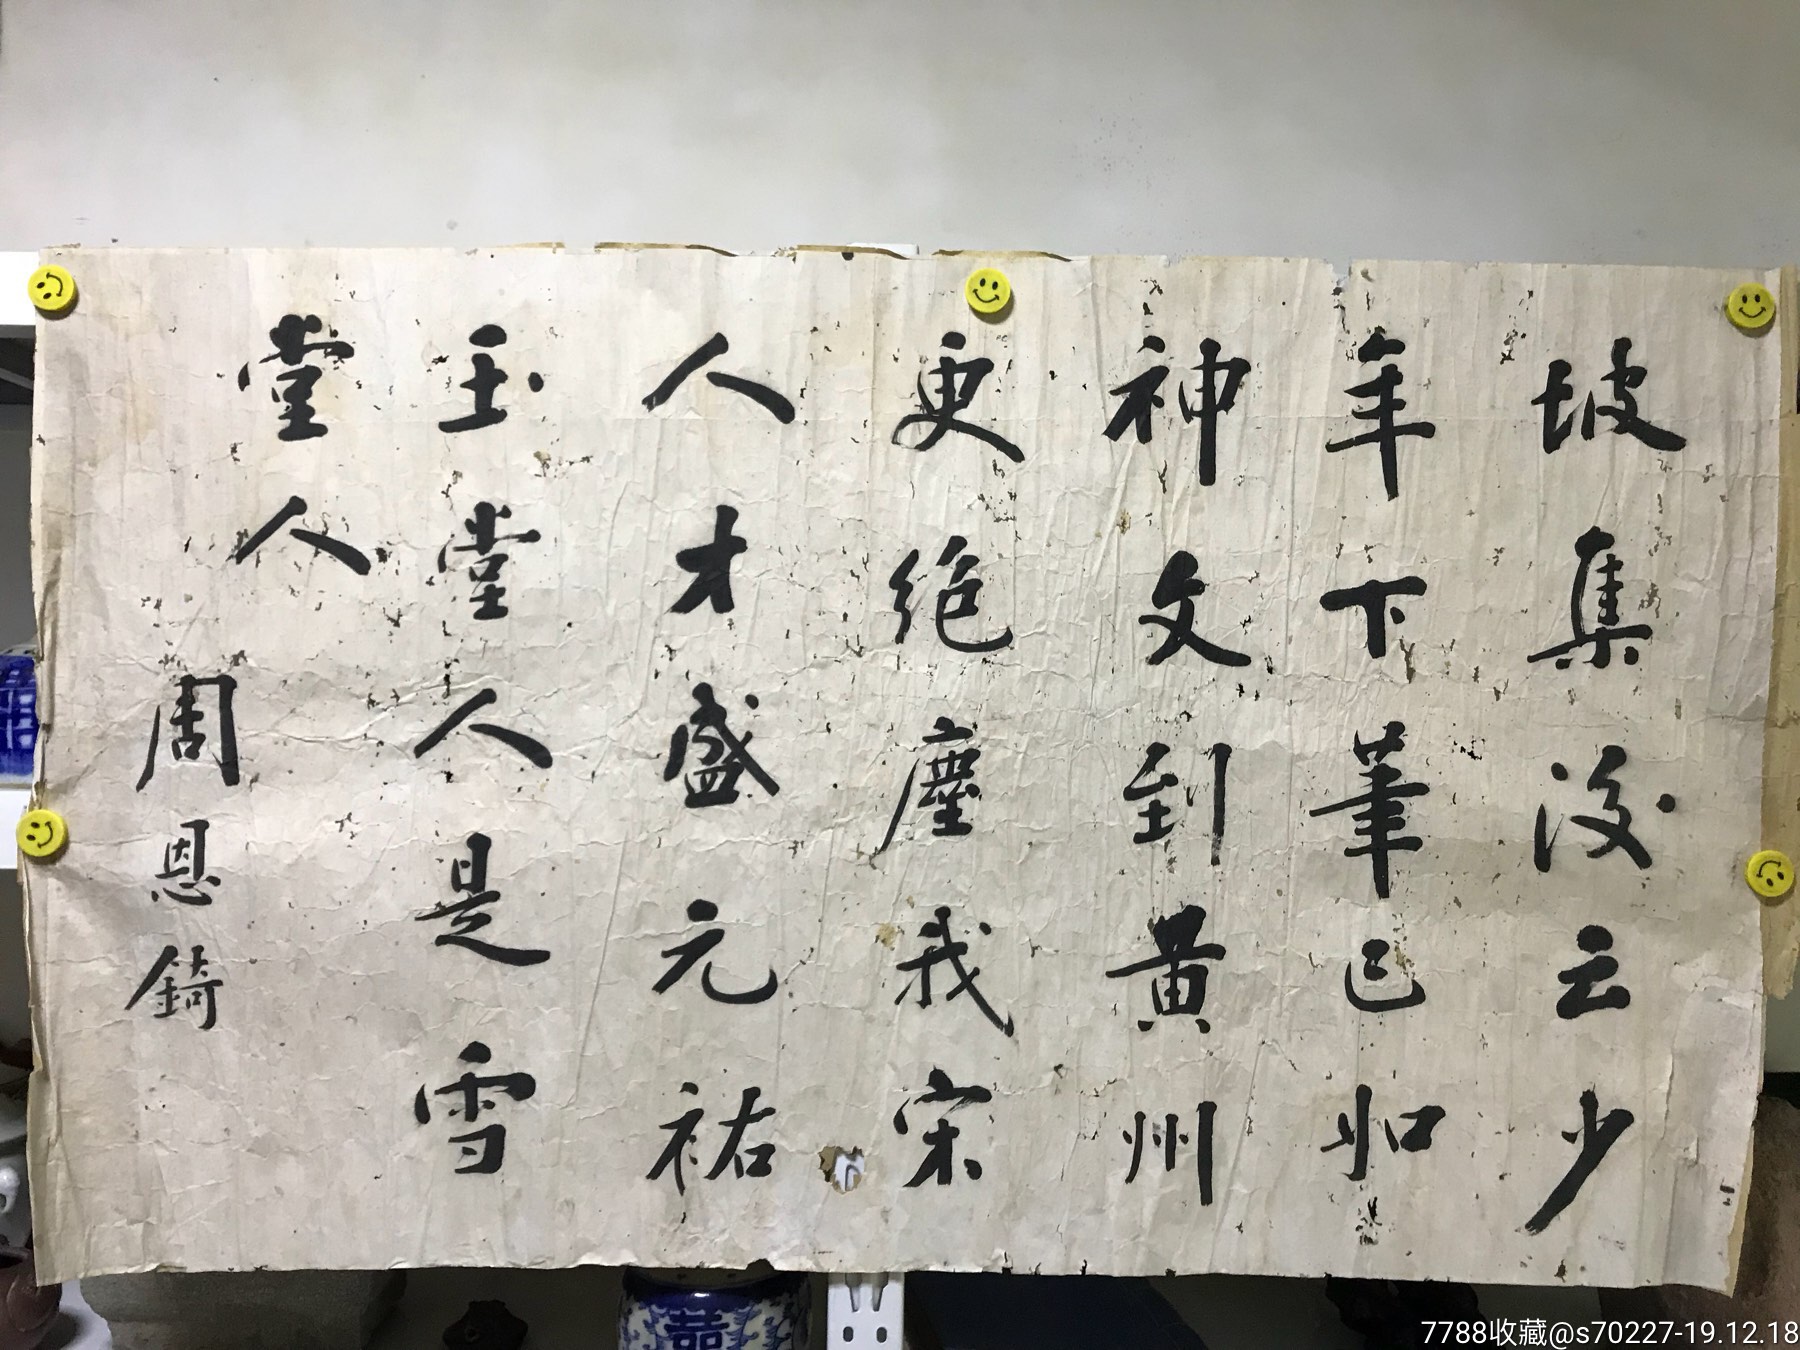 坡集浚云少
年下筆已如
神文到黄州
更絶塵我宋
人才盛元祐
玉堂人是雪
堂人
周恩錡
7788收藏@s70227-19.12.18